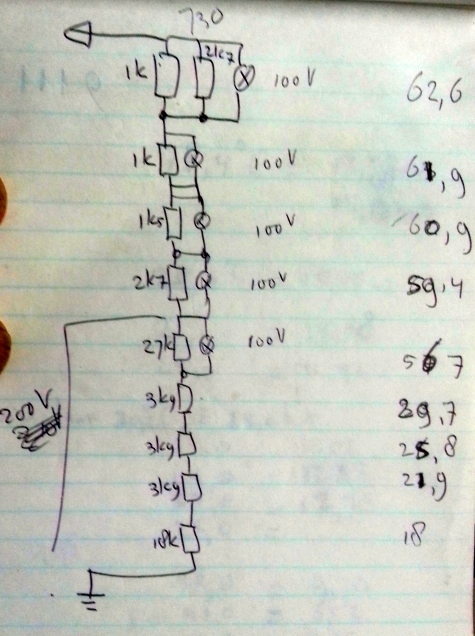 730
1k 2k7 100V 62,6
1k 100V 61,9
1k5 100V 60,9
2k7 100V 59,4
27k 100V 56 7
3k9 29,7
200V
3k9 25,8
3k9 21,9
18k 18